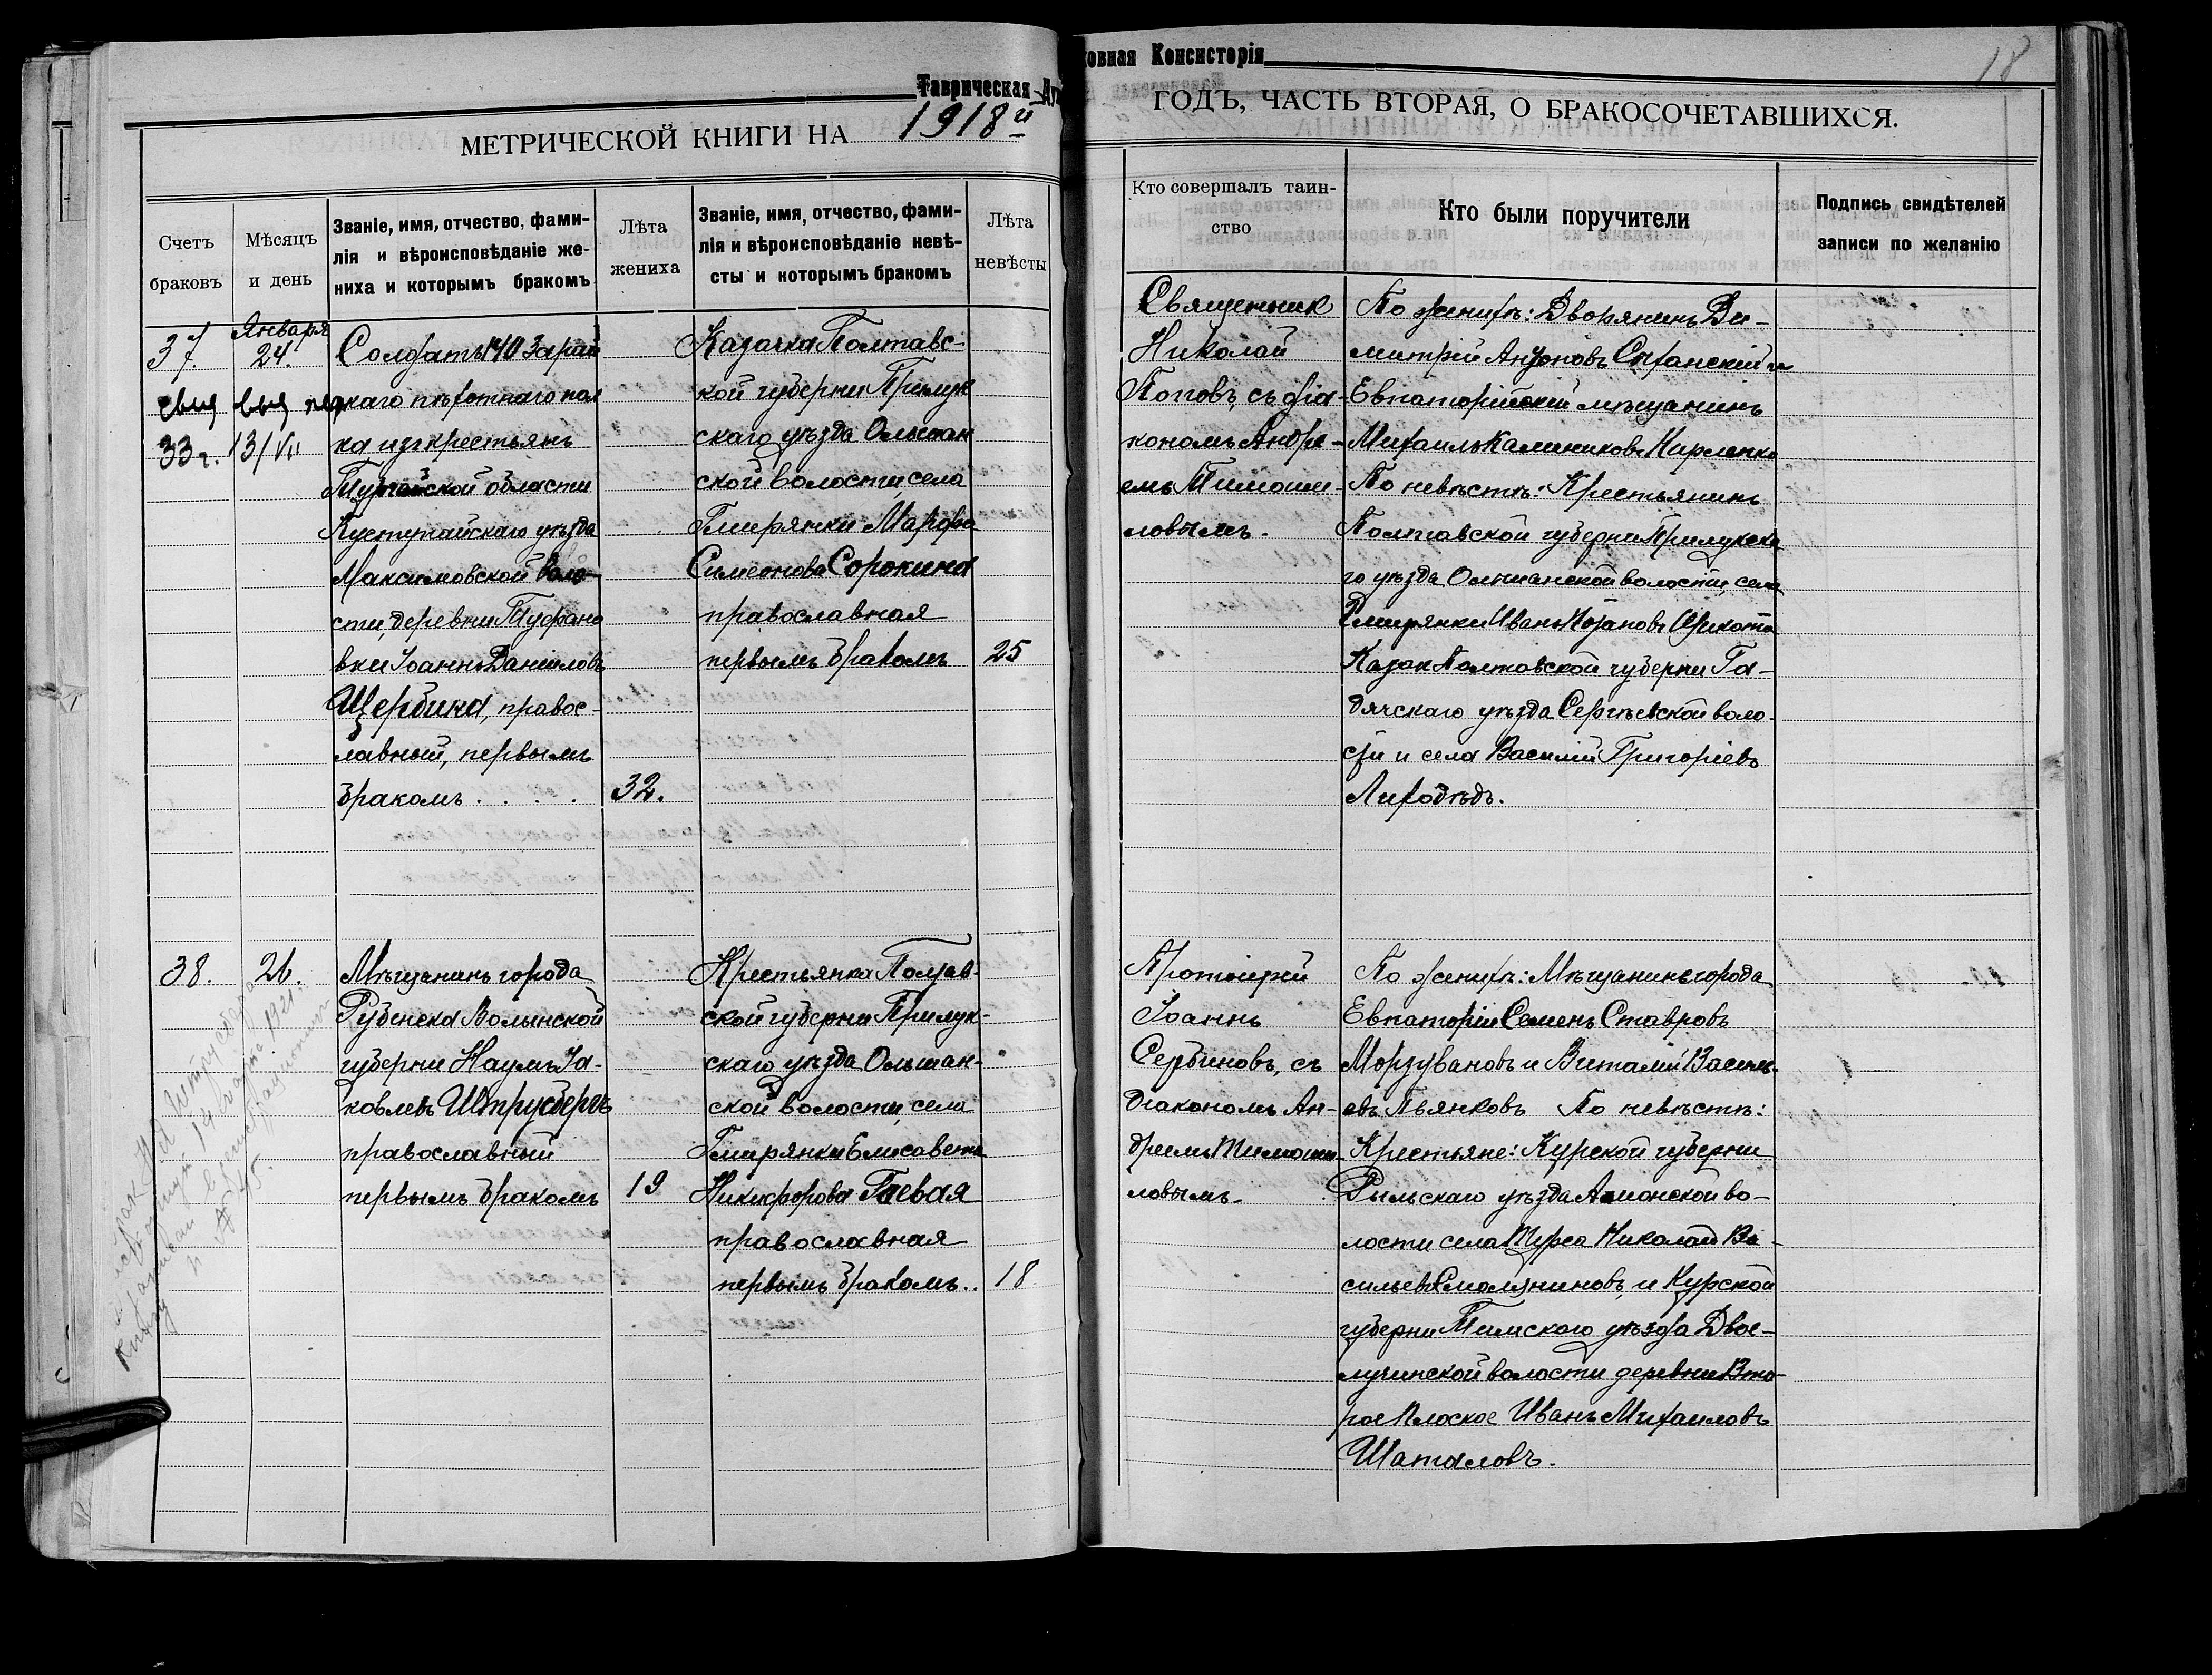 Таврическая Духовная Консисторія
18
МЕТРИЧЕСКОЙ КНИГИ НА 1918й ГОДЪ, ЧАСТЬ ВТОРАЯ, О БРАКОСОЧЕТАВШИХСЯ.
Счетъ
браковъ
Мѣсяцъ
и день
Званіе, имя, отчество, фами-
лія и вѣроисповѣданіе же-
ниха и которымъ бракомъ
Лѣта
жениха
Званіе, имя, отчество, фами-
лія и вѣроисповѣданіе невѣ-
сты и которымъ бракомъ
Лѣта
невѣсты
Кто совершалъ таин-
ство
Кто были поручители
Подпись свидѣтелей
записи по желанію
37.
33 г.
Января
24.
13/VII
Солдатъ 140 Зарай
скаго пѣхотнаго пол
ка изъ крестьянъ
Тургайской области
Кустунайскаго уѣзда
Максимовской воло-
сти, деревни
вки Іоаннъ Даніиловъ
Щербина, правос-
лавный, первымъ
бракомъ . . . .
32.
Казачка Полтавс-
кой губерни Прилук
скаго уѣзда Ольшан
ской волости, села
Гмирянки Марфа
Симеонова Сорокина
православная
первымъ бракомъ
25
Священник
Николай
Поповъ, съ діа-
кономъ Андре-
емъ Тимоши-
ловымъ.
По женихѣ: Дворянинъ Ди-
митрій Антоновъ и
Евпаторійскій мѣщанинъ
Михаилъ Калиниковъ
По невѣстѣ: Крестьянинъ
Полтавской губерни Прилукска
го уѣзда Ольшанской волости, села
Гмирянки Иванъ
Казак Полтавской губерни Га-
дячскаго уѣзда Сергѣевской воло-
сти и села Василій Григоріевъ
Лиходѣдъ.
38.
26.
Мѣщанинъ города
Волынской
губерни Наумъ Іа-
ковлевъ Штрусбергъ
православный
первымъ бракомъ
19
Крестьянка Полтав-
ской губерни Прилук-
скаго уѣзда Ольшан-
ской волости, села
Гмирянки Елисавета
Никифорова Гаевая
православная
первымъ бракомъ..
18
Протоіерей
Іоаннъ
Сербиновъ, съ
діакономъ Ан-
дреемъ Тимоши-
ловымъ.
По женихѣ: Мѣщанинъ города
Евпаторіи Семенъ Ставровъ
Морзувановъ и Виталій Василь-
евъ Пьянковъ По невѣстѣ:
Крестьяне: Курской губерни
Рыльскаго уѣзда Амонской во-
лости села Николай Ва-
сильевъ Смоляниновъ, и Курской
губерни Тимского уѣзда Двое-
лучинской волости деревни Вто-
рое Плоское Иванъ Михаиловъ
Шаталовъ.